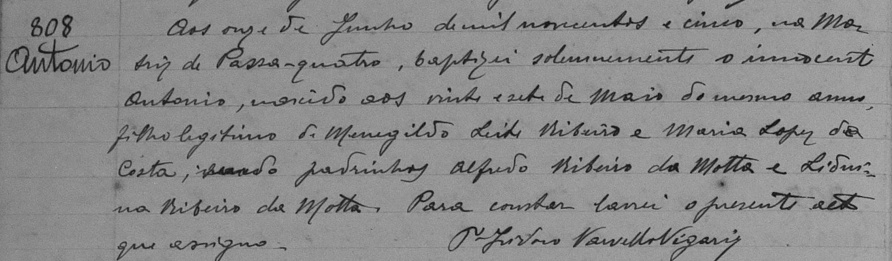 808
Antonio
Aos onze de Junho de mil novecentos e cinco, na Ma-
triz de Passa-quatro, baptizei solemnemente o innocent
Antonio, nascido aos vinte e sete de Maio do mesmo anno,
filho legitimo de Menegildo Leite Ribeiro e Maria Lopez da
Costa, sendo padrinhos Alfredo Ribeiro da Motta e Lidui-
na Ribeiro da Motta. Para constar lavrei o presente act
que assigno.
Pe Isidoro Vigario